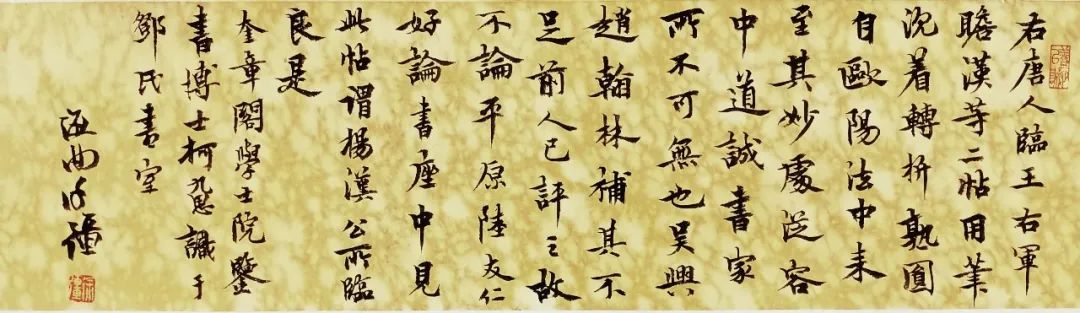 右唐人臨王右軍
瞻漢等二帖用筆
沉着轉折熟圓
自歐陽法中來
至其妙處從容
中道誠書家
所不可無也吳興
趙翰林補其不
足前人已評之故
不論平原陸友仁
好論書座中見
此帖謂楊漢公所臨
良是
奎章閣學士院鑒
書博士柯九思識于
氏書室
海曲